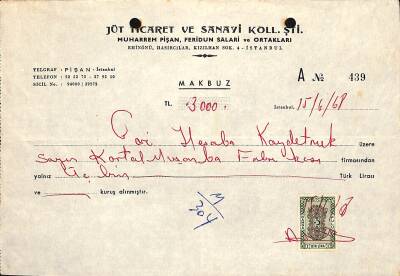 JÜT TİCARET VE SANAYİ KOLL. ŞTİ.
MUHARREM PİŞAN, FERİDUN SALARİ ve ORTAKLARI
EMİNÖNÜ, HASIRCILAR, KIZILHAN SOK. 4 - İSTANBUL
TELGRAF : PİŞAN - İstanbul
TELEFON :
SİCİL No. :
MAKBUZ
A № 439
TL. 3000.
İstanbul, 15/6/68
Cari Hesaba Kaydetmek üzere
Sayın Kartal Muşamba Fabrikası firmasından
yalnız Üç bin Türk Lirası
ve kuruş alınmıştır.
M/304